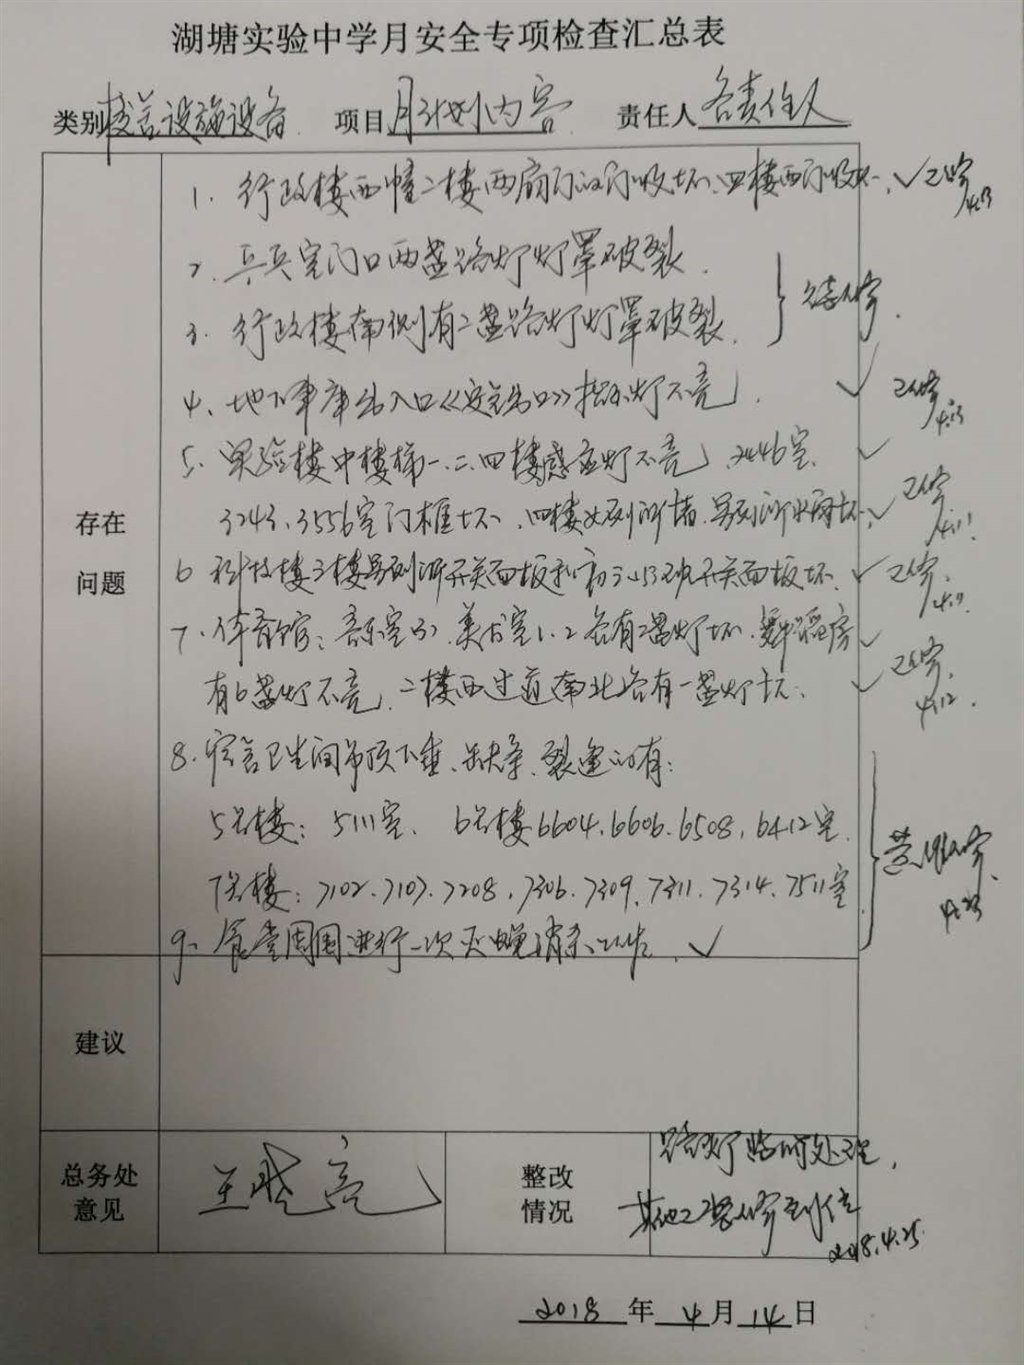 湖塘实验中学月安全专项检查汇总表
类别 校舍设施设备 项目 月计划内容 责任人 各责任人
存在
问题
1. 行政楼西幢二楼两扇门的门吸坏、四楼西门吸坏. ✓已修 4.13
2. 乒乓室门口两盏路灯灯罩破裂.
3. 行政楼南侧有二盏路灯灯罩破裂.
4、地下车库出入口《安全出口》指示灯不亮. ✓ 已修 4.13
5. 实验楼中楼梯一、二、四楼感应灯不亮、2446室. ✓
3243、3556室门框坏、四楼女厕所堵. ✓ 已修 4.11
6 科技楼三楼男厕所开关面板和初三(15)班开关面板坏. ✓ 已修. 4.9
7、体育馆：音乐室、美术室1、2各有2盏灯坏、舞蹈房 ✓
有6盏灯不亮、二楼西过道南北各有一盏灯坏. ✓ 已修. 4.12.
8. 宿舍卫生间吊顶下垂、缺条、裂缝的有：
5号楼：5111室. 6号楼6604、6606、6508、6412室.
7号楼：7102、7107、7208、7306、7309、7311、7314、7511室
4.23
9、食堂周围进行一次灭蝇消杀工作. ✓
建议
总务处
意见
王晓亮
整改
情况
路灯临时处理,
其他已落修到位
2018.4.25.
2018 年 4 月 14 日